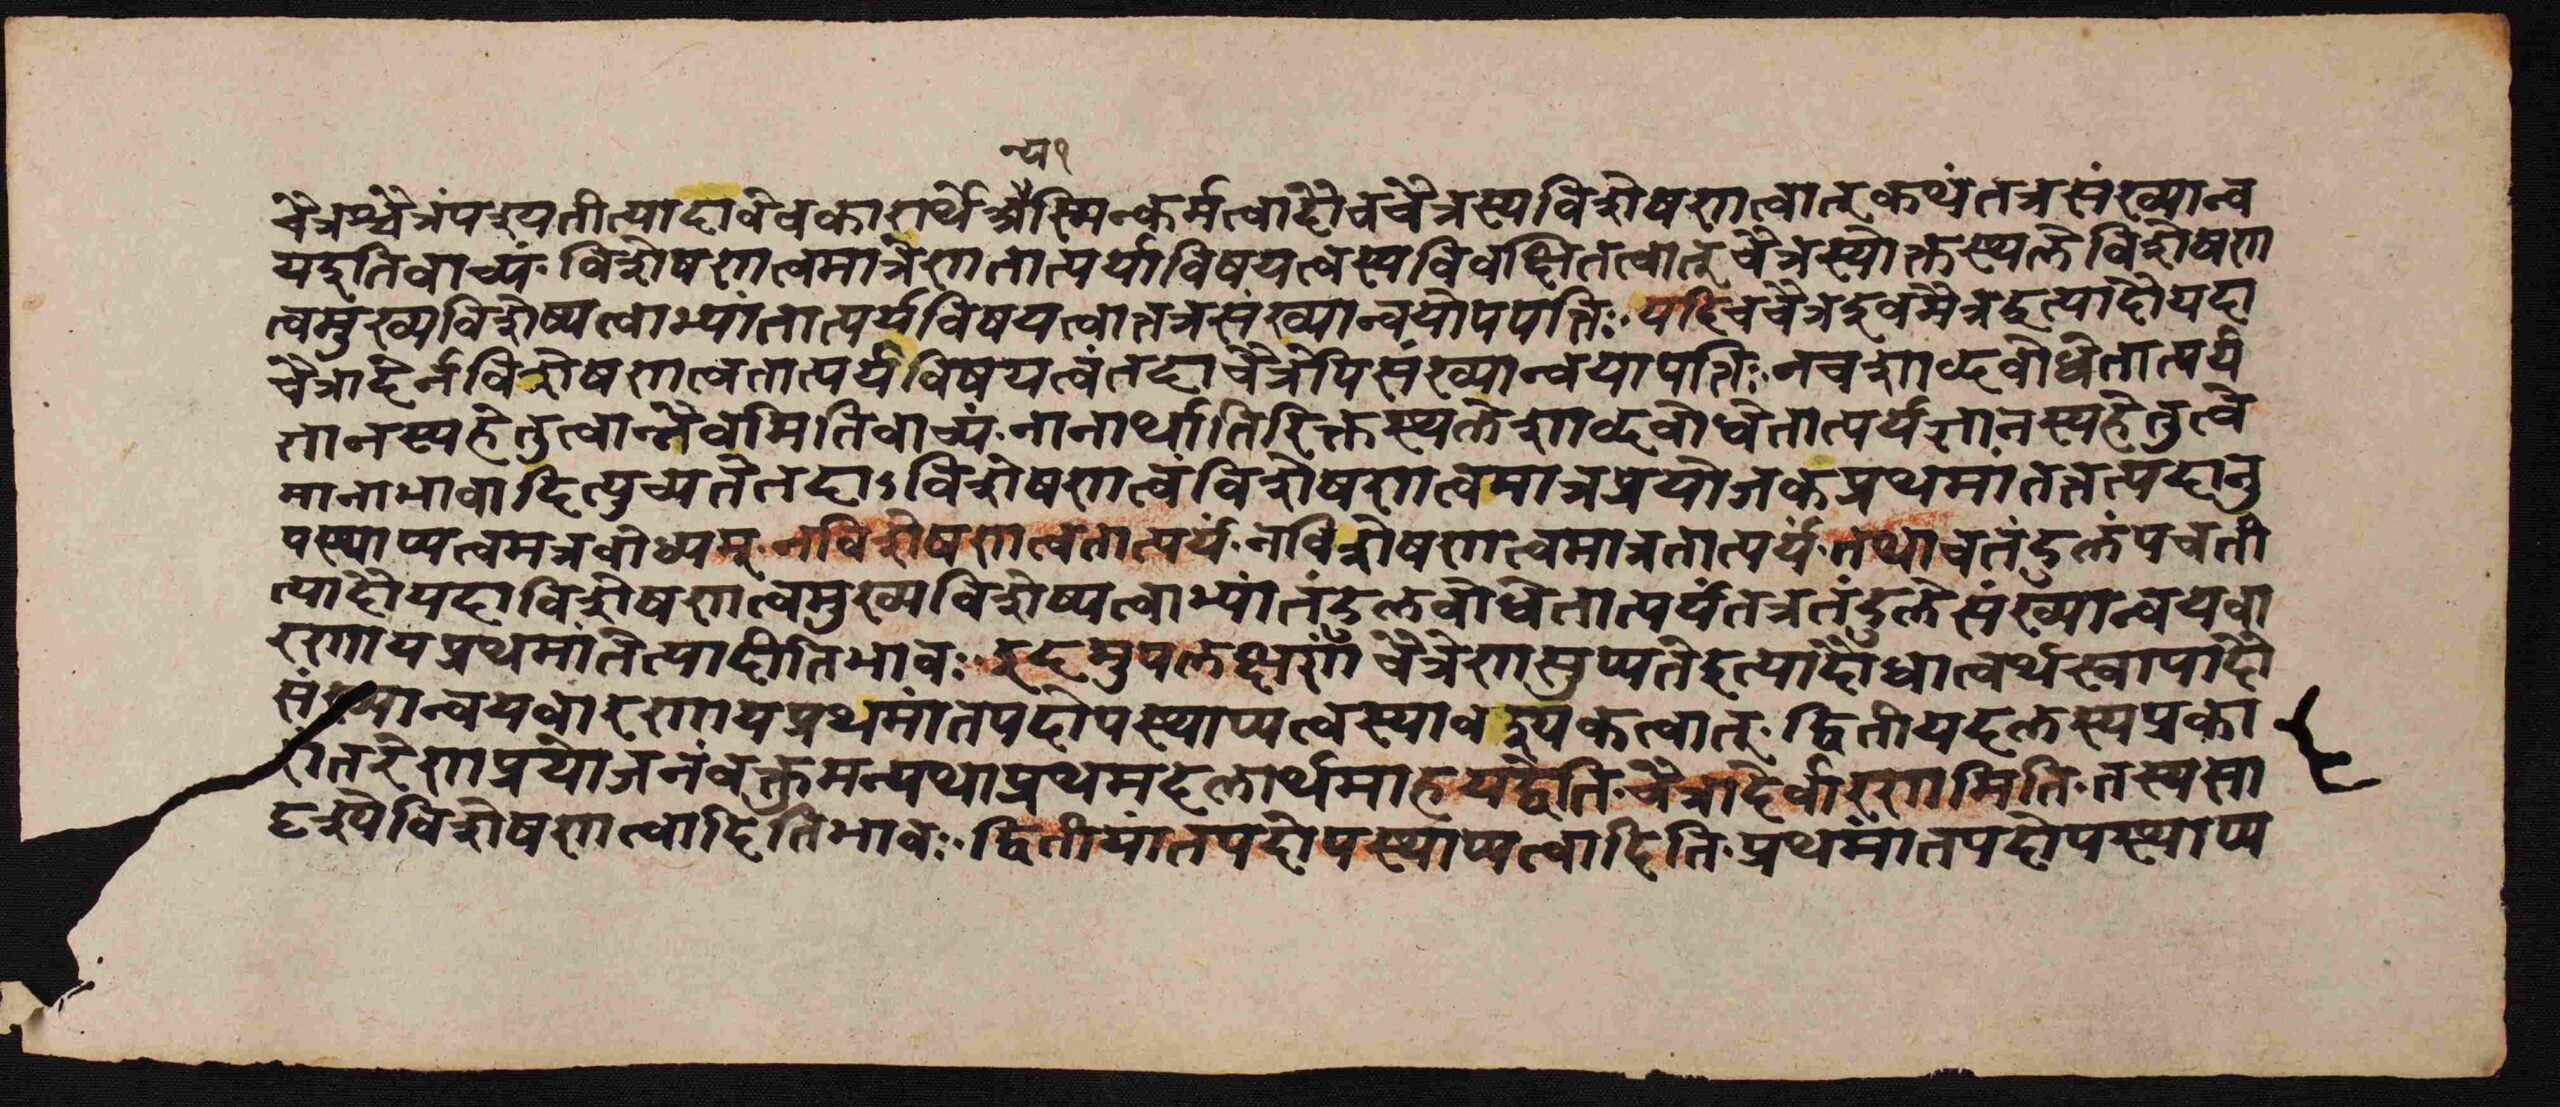 न्य१
चैत्रश्चैत्रंपश्यतीत्यादावेवकारार्थेअैस्मिन्कर्मत्वादौचचैत्रस्यविशेषणत्वात्कथंतत्रसंख्यान्व
यइतिवाच्यं.विशेषणत्वमात्रेणतात्पर्याविषयत्वस्यविवक्षितत्वात्चैत्रस्योक्तस्थलेविशेषण
त्वमुख्यविशेष्यत्वाभ्यांतात्पर्यविषयत्वात्तत्रसंख्यान्वयोपपत्तिः.यदिचचैत्रइवमैत्रइत्यादौयदा
चैत्रादेर्नविशेषणत्वतात्पर्यविषयत्वंतदाचैत्रेपिसंख्यान्वयापत्तिः.नचशाब्दबोधेतात्पर्य
ज्ञानस्यहेतुत्वान्नैवमितिवाच्यं.नानार्थातिरिक्तस्थलेशाब्दबोधेतात्पर्यज्ञानस्यहेतुत्वे
मानाभावादित्युच्यतेतदाऽविशेषणत्वंविशेषणत्वमात्रप्रयोजकप्रथमांततत्पदानु
पस्थाप्यत्वमत्रबोध्यम्.नविशेषणत्वतात्पर्यं.नविशेषणत्वमात्रतात्पर्यं.तथाचतंदुलंपचती
त्यादौयदाविशेषणत्वमुख्यविशेष्यत्वाभ्यांतंदुलबोधेतात्पर्यंतत्रतंदुलेसंख्यान्वयवा
रणायप्रथमांतेत्यादीतिभावः.इदमुपलक्षणं.चैत्रेणसुप्यतेइत्यादौधात्वर्थस्वापादौ
संख्यान्वयवारणायप्रथमांतपदोपस्थाप्यत्वस्यावश्यकत्वात्.द्वितीयदलस्यप्रका
रांतरेणप्रयोजनंवक्तुमन्यथाप्रथमदलार्थमाहयद्वेति.चैत्रादेर्वारणमिति.तस्यसा
दृश्येविशेषणत्वादितिभावः.द्वितीयांतपदोपस्थाप्यत्वादिति.प्रथमांतपदोपस्थाप्य